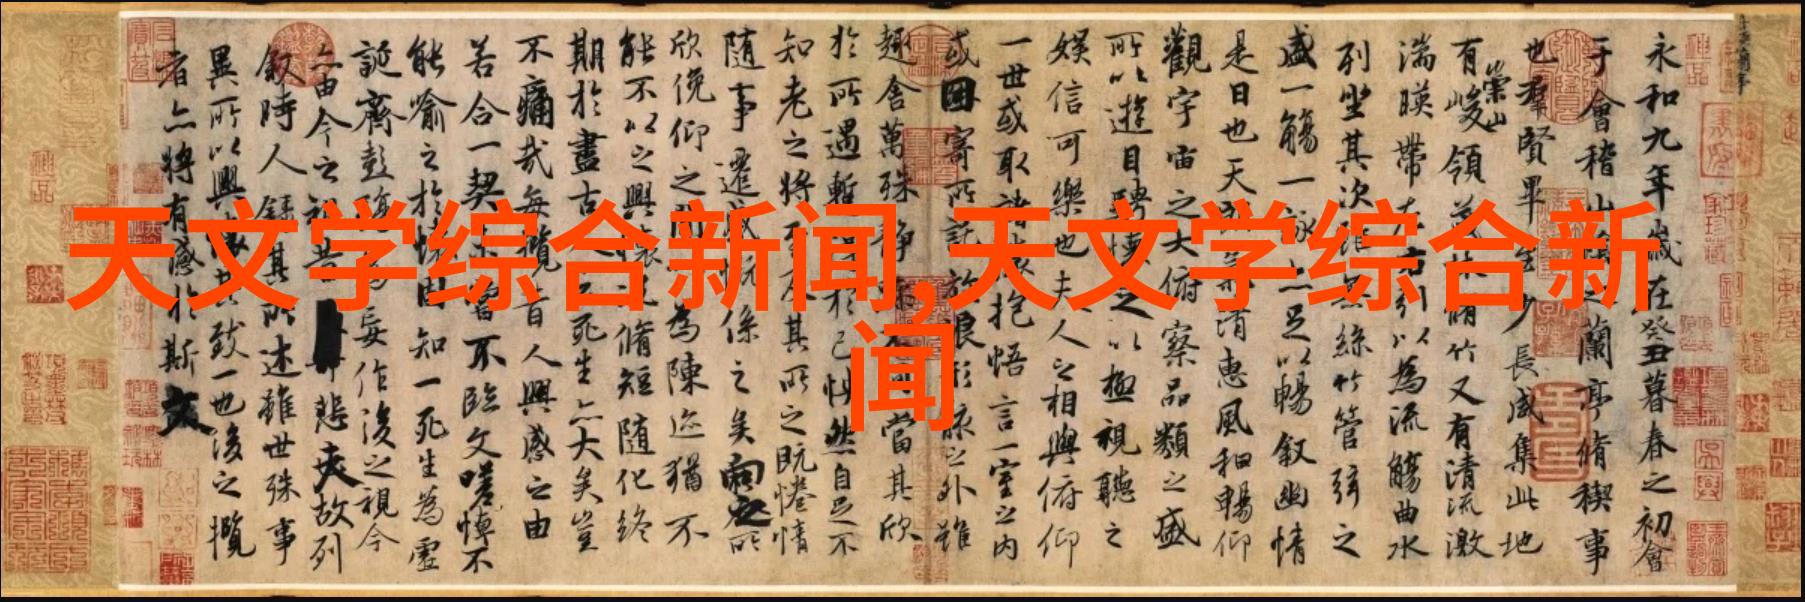 天文学综合新闻,天文学综合新
闻
永和九年歲在癸丑暮春之初會
于會稽山陰之蘭亭脩稧事
也羣賢畢至少長咸集此地
崇山
有峻領茂林脩竹又有清流激
湍暎帶左右引以為流觴曲水
列坐其次雖無絲竹管弦之
盛一觴一詠亦足以暢叙幽情
是日也天朗氣清惠風和暢仰
觀宇宙之大俯察品類之盛
所以遊目騁懷足以極視聽之
娛信可樂也夫人之相與俯仰
一世或取諸懷抱悟言一室之內
或因寄所託放浪形骸之外雖
趣舍萬殊靜當其欣
於所遇蹔得於己怏然自足不
知老之將至及其所之既惓情
隨事遷感慨係之矣向之所
欣俛仰之閒為陳迹猶不
能不以之興懷況脩短隨化終
期於盡古人云死生亦大矣豈
不痛哉每攬昔人興感之由
若合一契未嘗不臨文嗟悼不
能喻之於懷固知一死生為虛
誕齊彭殤為妄作後之視今
亦由今之視昔悲夫故列
叙時人錄其所述雖世殊事
異所以興懷其致一也後之攬
者亦將有感於斯文